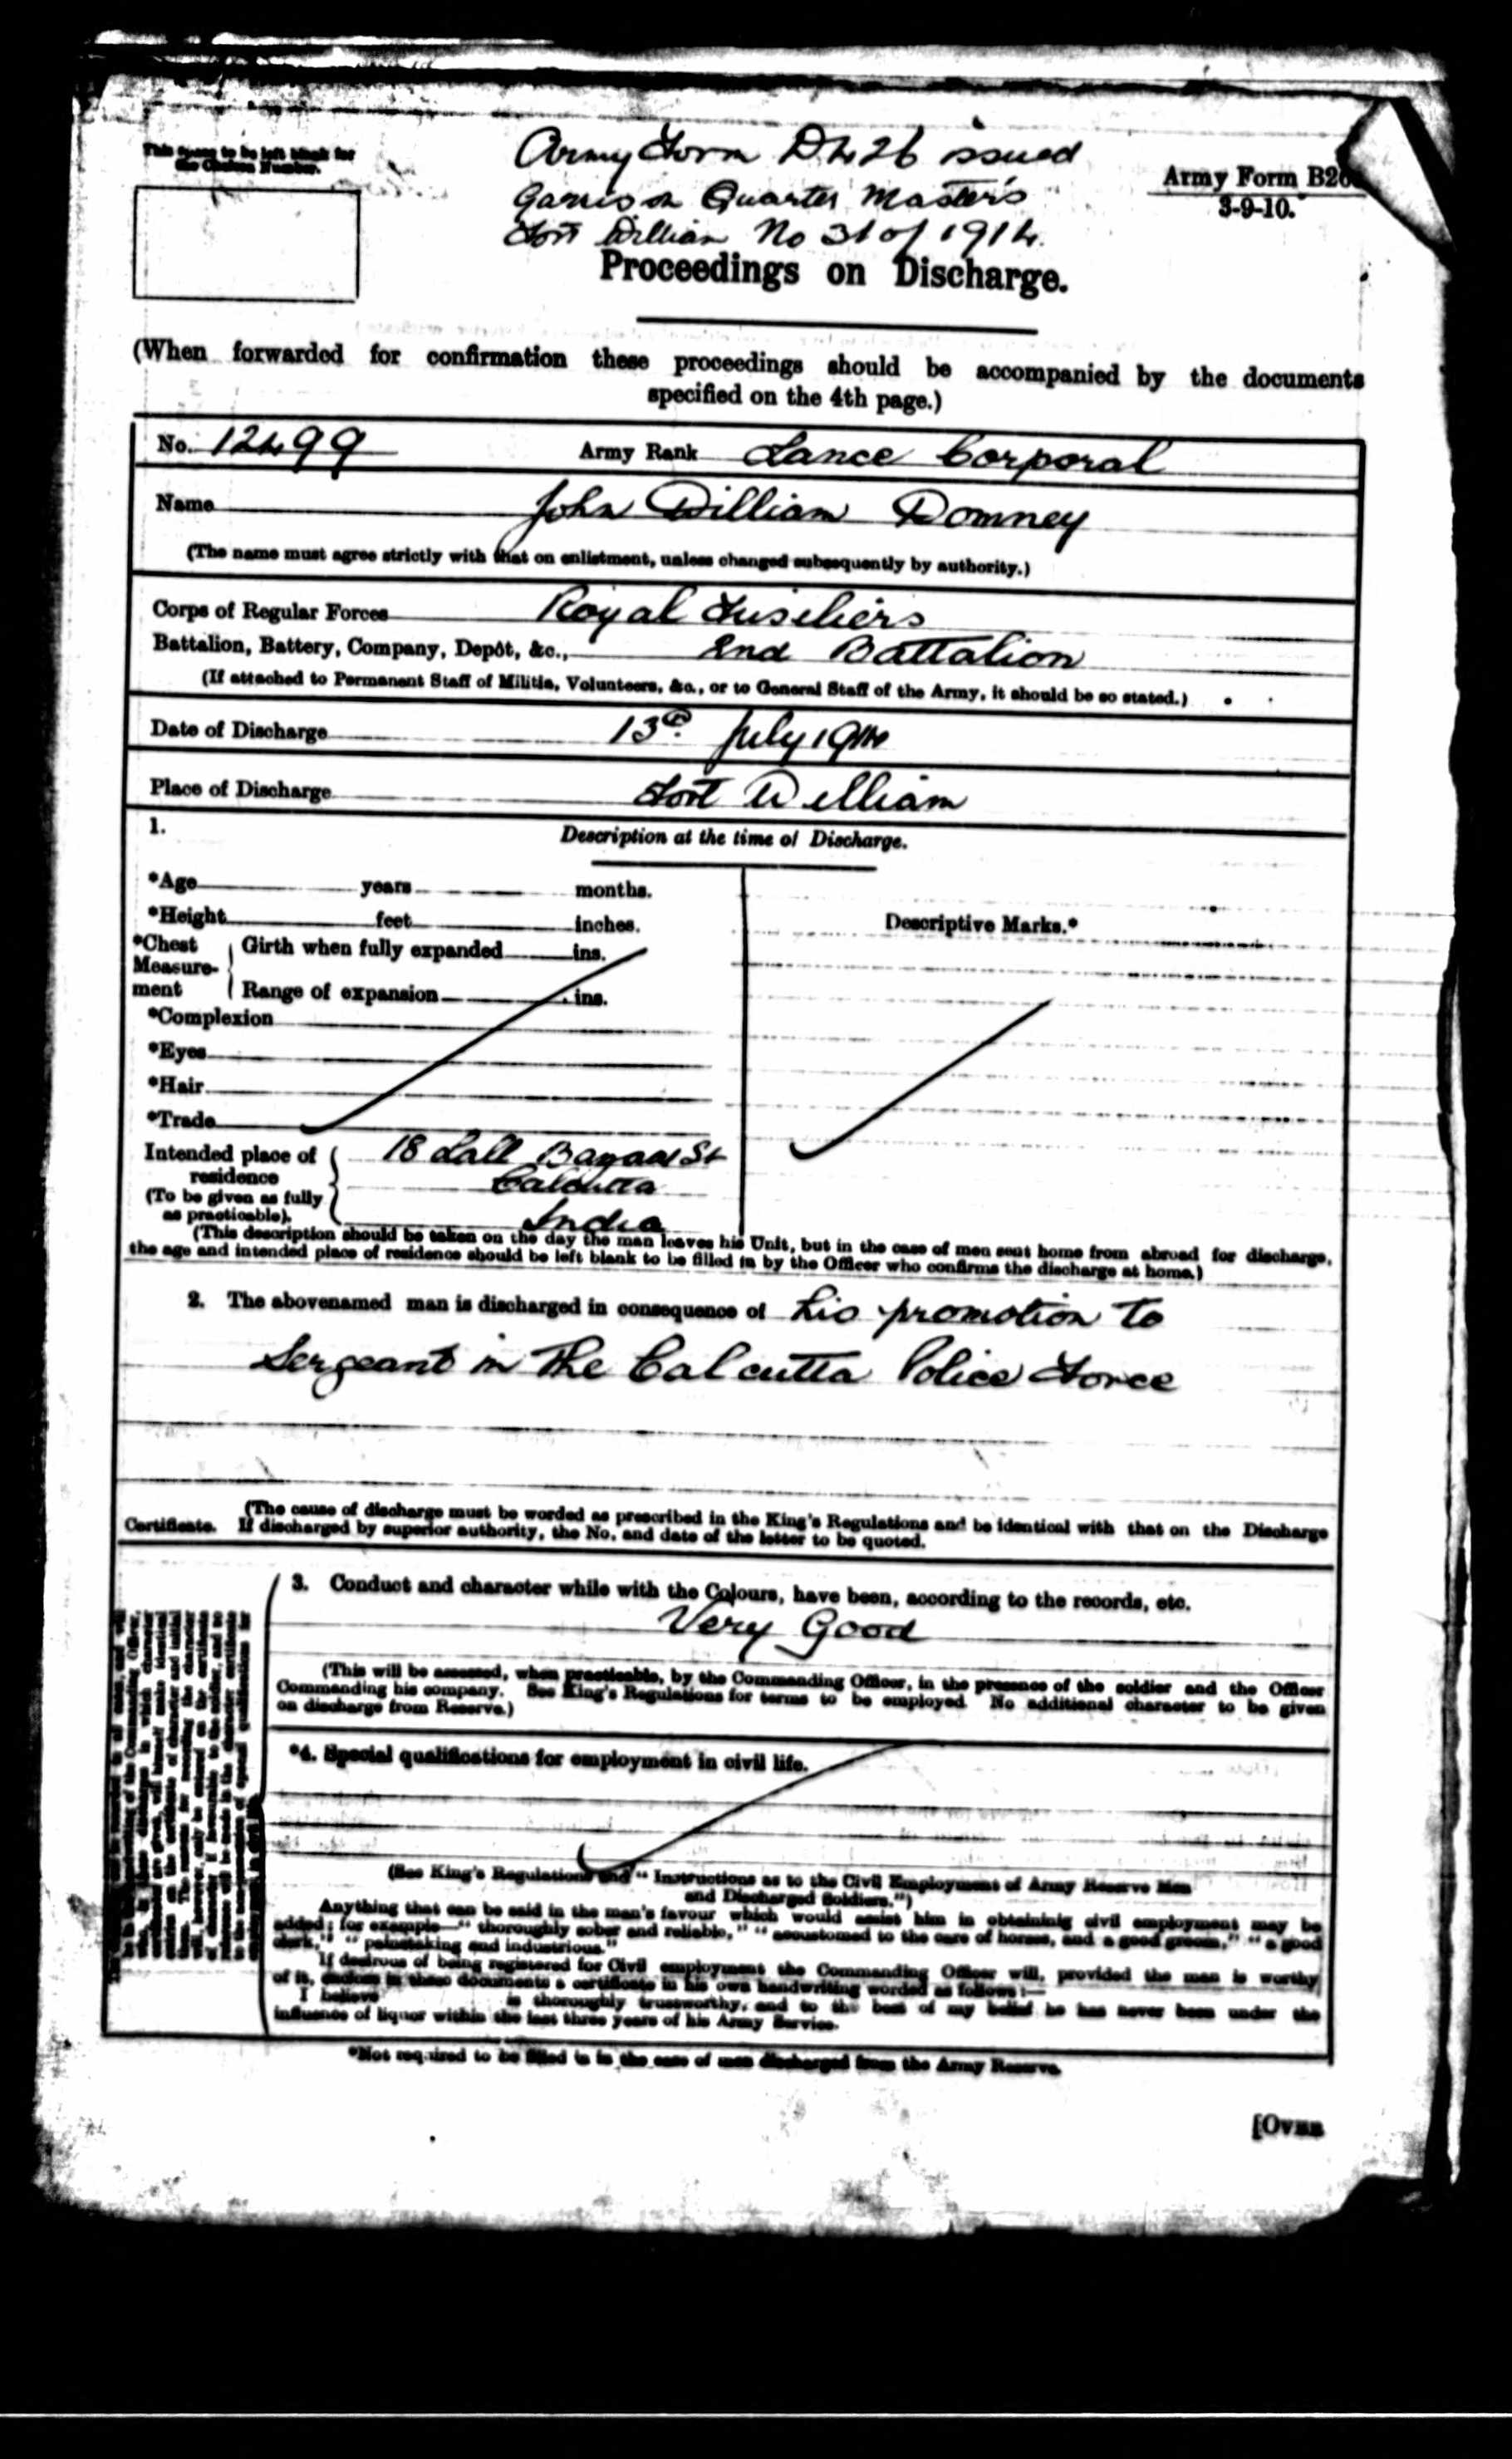 This space to be left blank for
the Chelsea Number.
Army Form D426 issued
Garrison Quarter Master's
Fort William No 31 of 1914.
Army Form B26
3-9-10.
Proceedings on Discharge.
(When forwarded for confirmation these proceedings should be accompanied by the documents
specified on the 4th page.)
No. 12499 Army Rank Lance Corporal
Name John William Domney
(The name must agree strictly with that on enlistment, unless changed subsequently by authority.)
Corps of Regular Forces Royal Fusiliers
Battalion, Battery, Company, Depôt, &c., 2nd Battalion
(If attached to Permanent Staff of Militia, Volunteers, &c., or to General Staff of the Army, it should be so stated.)
Date of Discharge 13th July 1914
Place of Discharge Fort William
1. Description at the time of Discharge.
*Age years months.
*Height feet inches.
*Chest Measure-ment { Girth when fully expanded ins.
Range of expansion ins.
*Complexion
*Eyes
*Hair
*Trade
Descriptive Marks.*
Intended place of residence (To be given as fully as practicable). 18 Lall Bazaar St
Calcutta
India
(This description should be taken on the day the man leaves his Unit, but in the case of men sent home from abroad for discharge,
the age and intended place of residence should be left blank to be filled in by the Officer who confirms the discharge at home.)
2. The abovenamed man is discharged in consequence of his promotion to
Sergeant in The Calcutta Police Force
(The cause of discharge must be worded as prescribed in the King's Regulations and be identical with that on the Discharge
Certificate. If discharged by superior authority, the No. and date of the letter to be quoted.)
3. Conduct and character while with the Colours, have been, according to the records, etc.
Very Good
(This will be assessed, when practicable, by the Commanding Officer, in the presence of the soldier and the Officer
Commanding his company. See King's Regulations for terms to be employed. No additional character to be given
on discharge from Reserve.)
*4. Special qualifications for employment in civil life.
(See King's Regulations and "Instructions as to the Civil Employment of Army Reserve Men
and Discharged Soldiers.")
Anything that can be said in the man's favour which would assist him in obtaining civil employment may be
added; for example—"thoroughly sober and reliable," "accustomed to the care of horses, and a good groom," "a good
clerk," "painstaking and industrious."
If desirous of being registered for Civil employment the Commanding Officer will, provided the man is worthy
of it, enclose in these documents a certificate in his own handwriting worded as follows:—
I believe is thoroughly trustworthy, and to the best of my belief he has never been under the
influence of liquor within the last three years of his Army Service.
*Not required to be filled in in the case of men discharged from the Army Reserve.
[Over